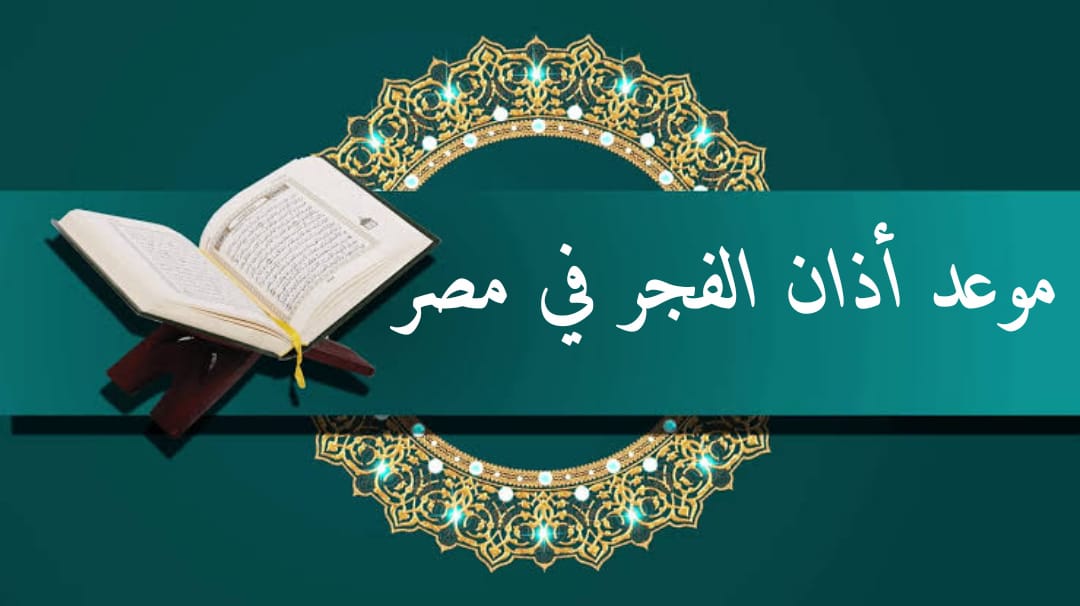 موعد أذان الفجر في مصر